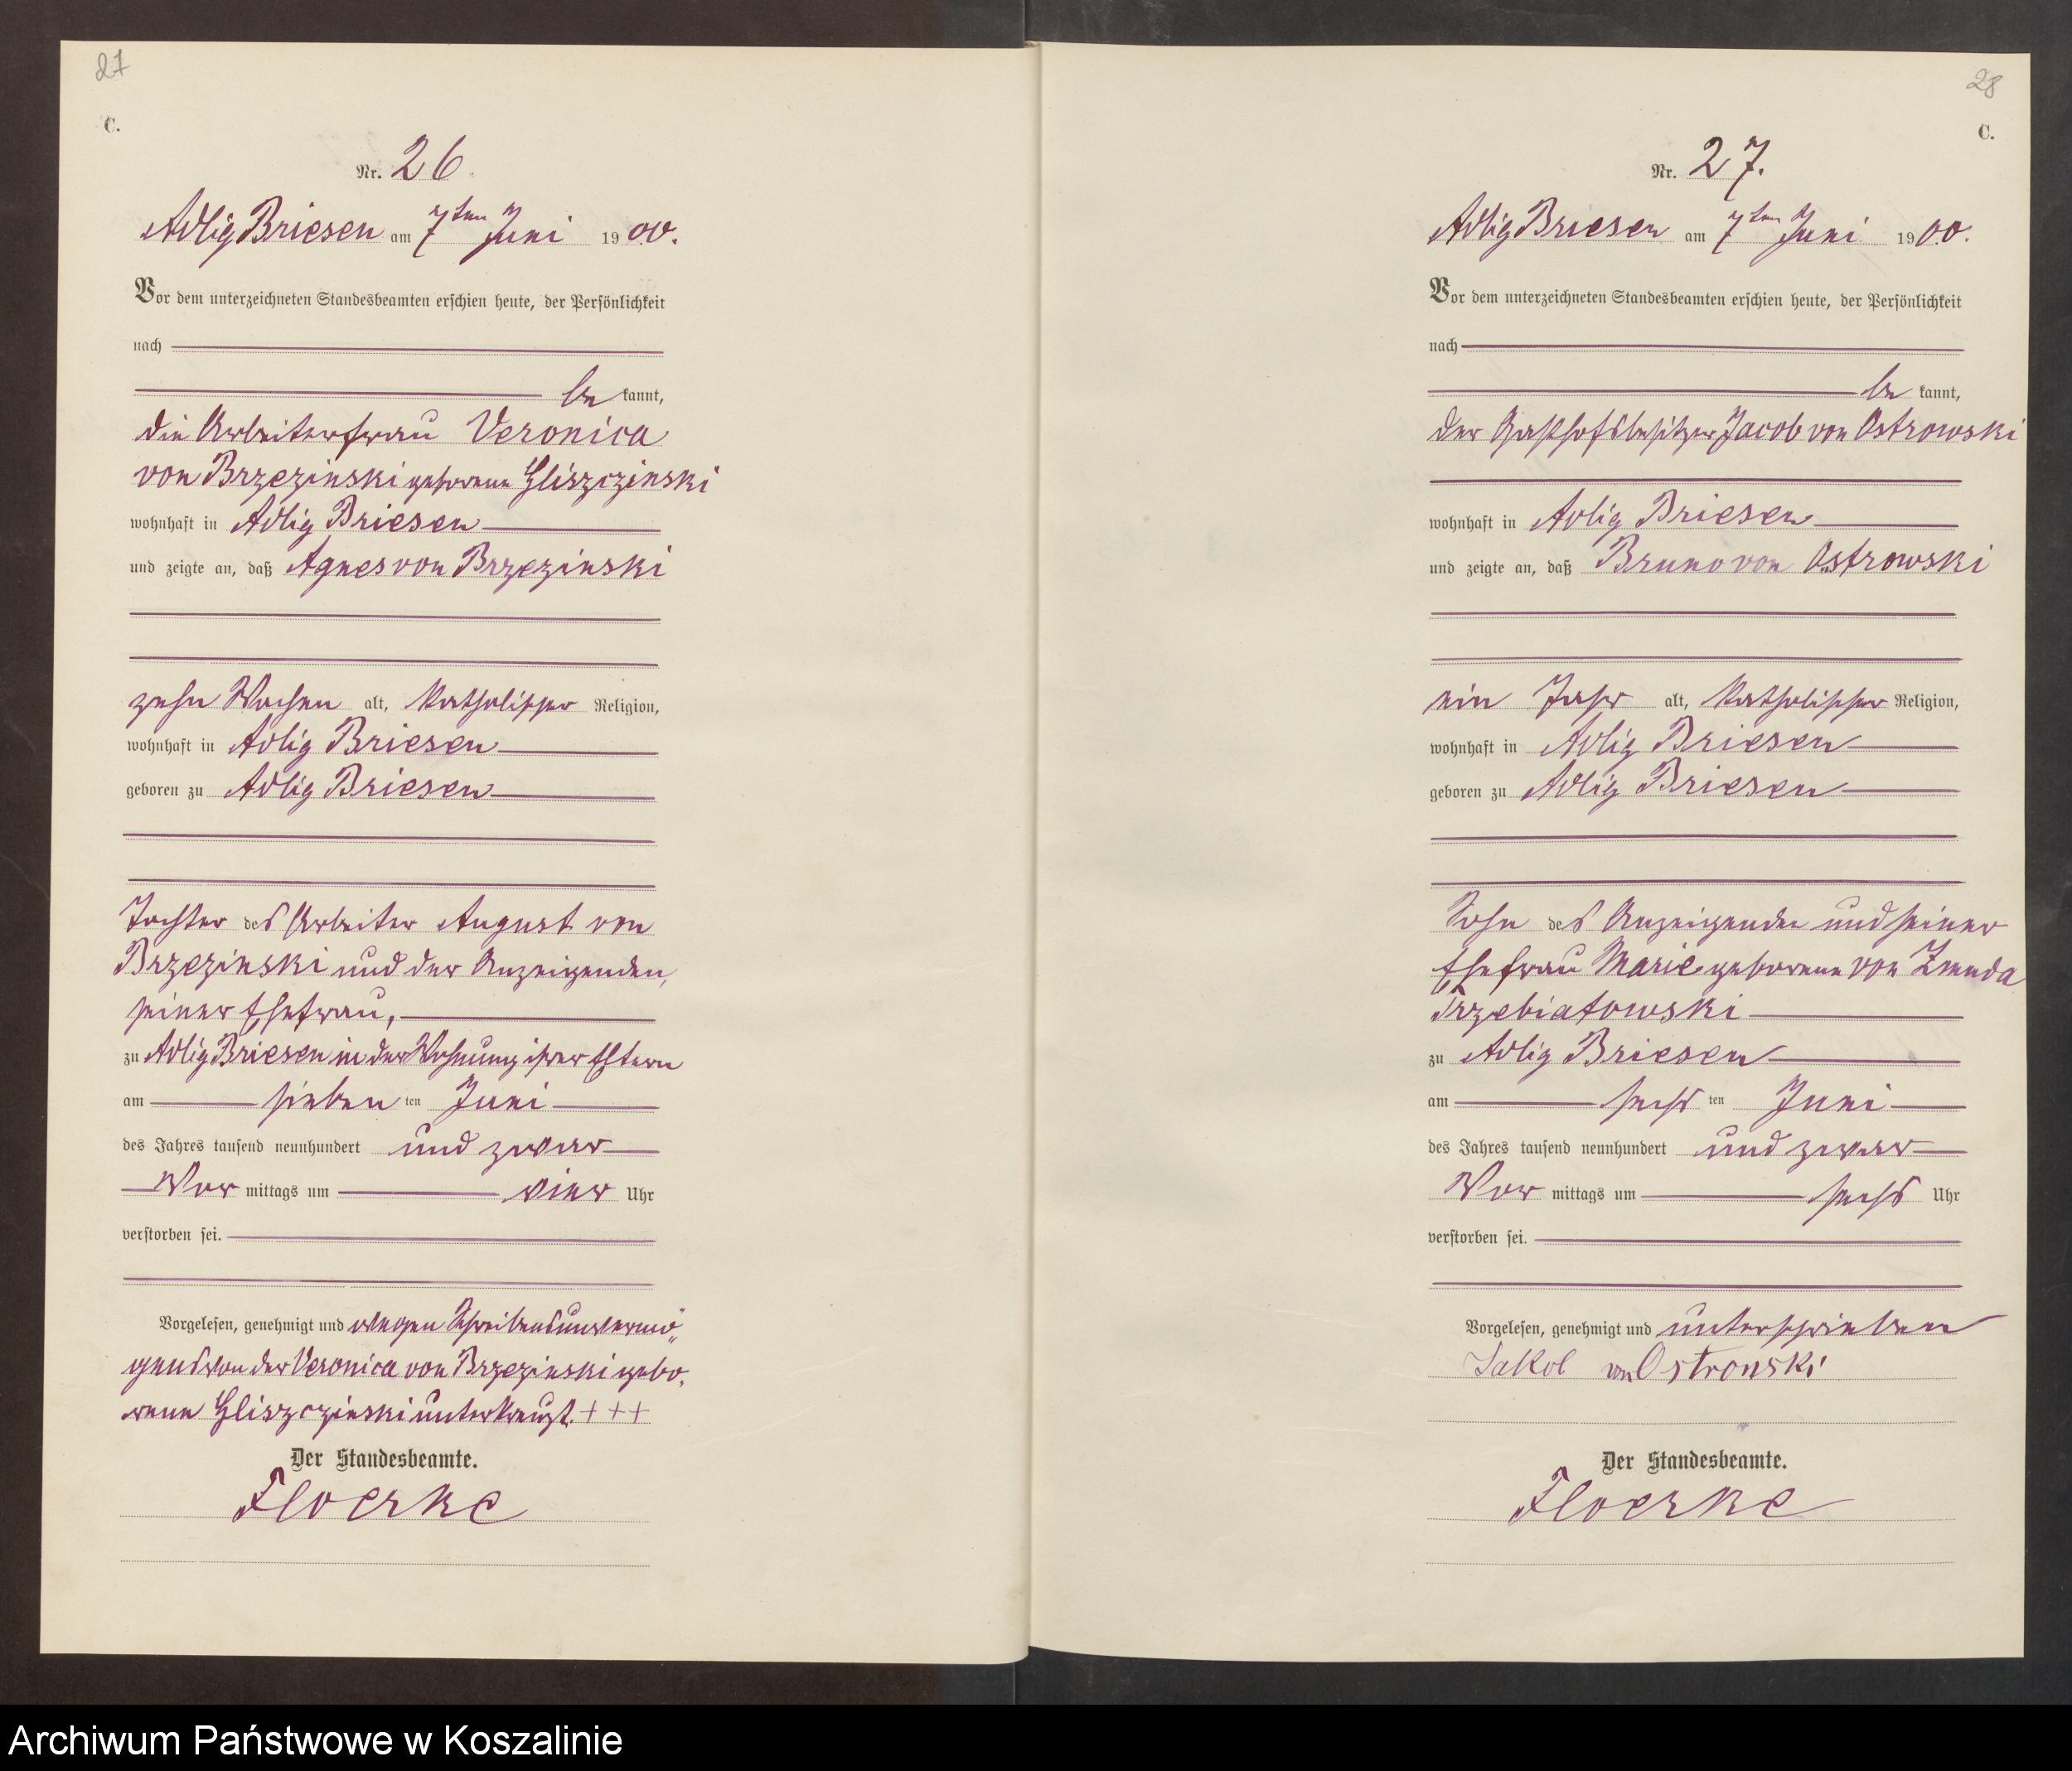 27
C.
Nr. 26
Adlig Briesen am 7ten Juni 1900.
Vor dem unterzeichneten Standesbeamten erschien heute, der Persönlichkeit
nach
be kannt,
die Arbeiterfrau Veronica
von Brzezinski geborene Gliszczinski
wohnhaft in Adlig Briesen
und zeigte an, daß Agnes von Brzezinski
zehn Wochen alt, katholischer Religion,
wohnhaft in Adlig Briesen
geboren zu Adlig Briesen
Tochter des Arbeiter August von
Brzezinski und der Anzeigenden,
seiner Ehefrau,
zu Adlig Briesen in der Wohnung ihrer Eltern
am sieben ten Juni
des Jahres tausend neunhundert und zwar
Vor mittags um vier Uhr
verstorben sei.
Vorgelesen, genehmigt und wegen Schreibensunvermö„
gens von der Veronica von Brzezinski gebo„
rene Gliszczinski unterkreuzt. + + +
Der Standesbeamte.
Floerke
28
C.
Nr. 27.
Adlig Briesen am 7ten Juni 1900.
Vor dem unterzeichneten Standesbeamten erschien heute, der Persönlichkeit
nach
be kannt,
der Gasthofsbesitzer Jacob von Ostrowski
wohnhaft in Adlig Briesen
und zeigte an, daß Bruno von Ostrowski
ein Jahr alt, katholischer Religion,
wohnhaft in Adlig Briesen
geboren zu Adlig Briesen
Sohn des Anzeigenden und seiner
Ehefrau Marie geborene von Zmuda
Trzebiatowski
zu Adlig Briesen
am sechs ten Juni
des Jahres tausend neunhundert und zwar
Vor mittags um sechs Uhr
verstorben sei.
Vorgelesen, genehmigt und unterschrieben
Jakob von Ostrowski
Der Standesbeamte.
Floerke
Archiwum Państwowe w Koszalinie